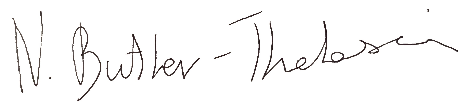 N. Butler-Thelasin